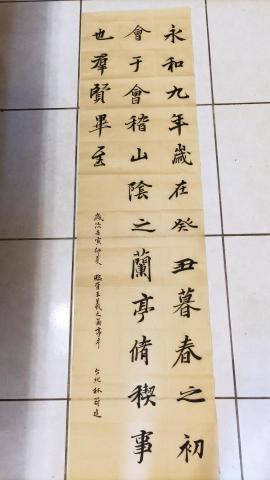 永和九年歲在癸丑暮春之初
會于會稽山陰之蘭亭脩稧事
也羣賢畢至
歲次壬寅仲夏 臨晉王羲之蘭亭序
台北林